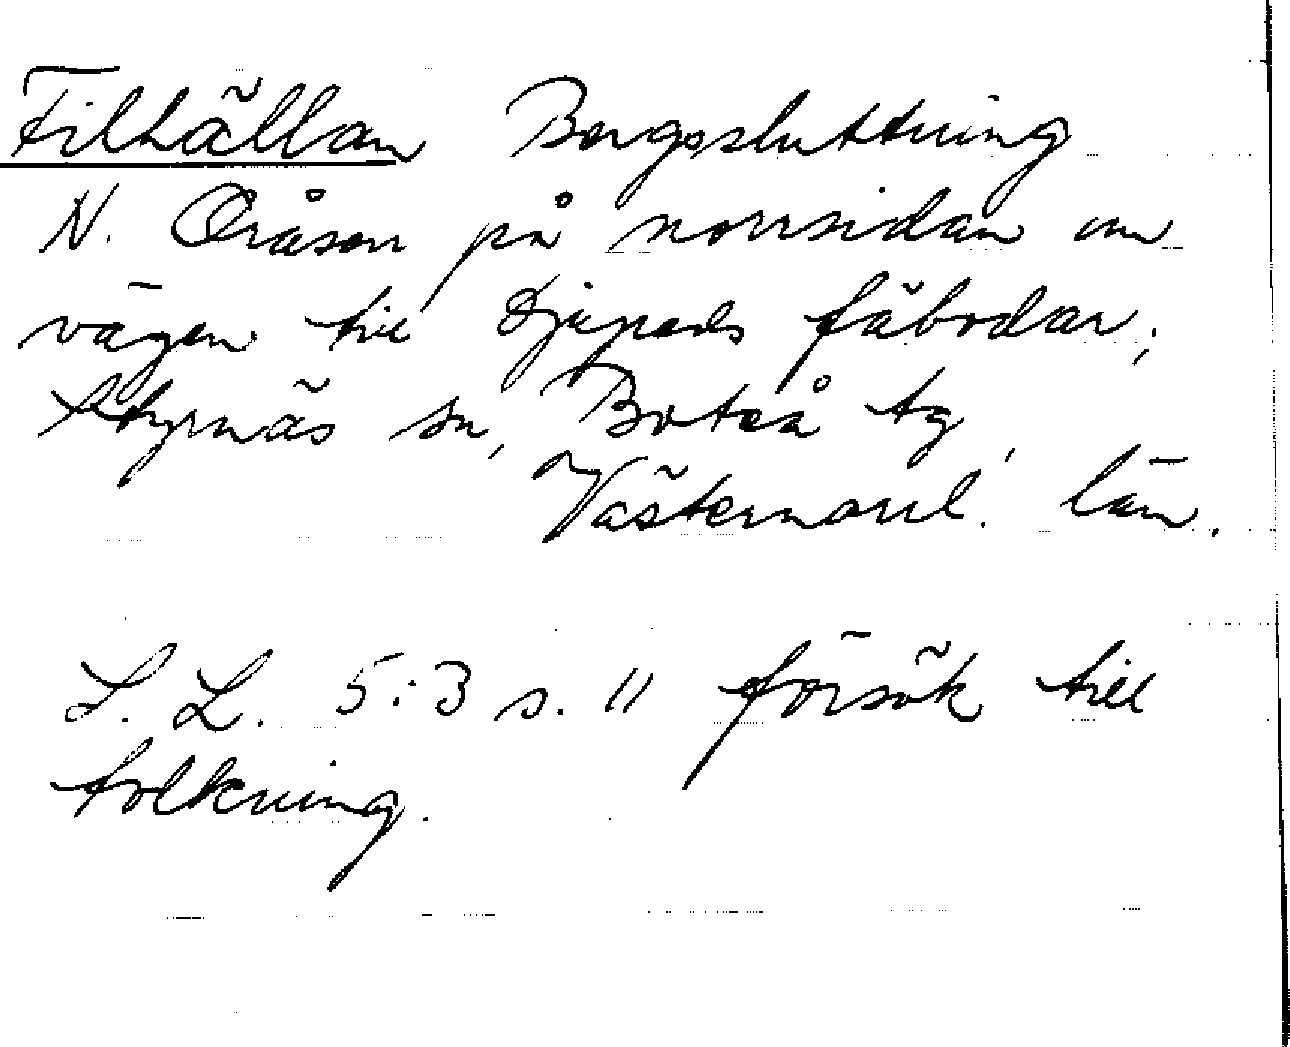 Filhällan Bergssluttning
N. Öråsen på norrsidan om
vägen till Djupeds fäbodar;
Styrnäs sn, Boteå tg,
Västernorrl. län.
L. L. 5:3 s. 11 försök till
tolkning.